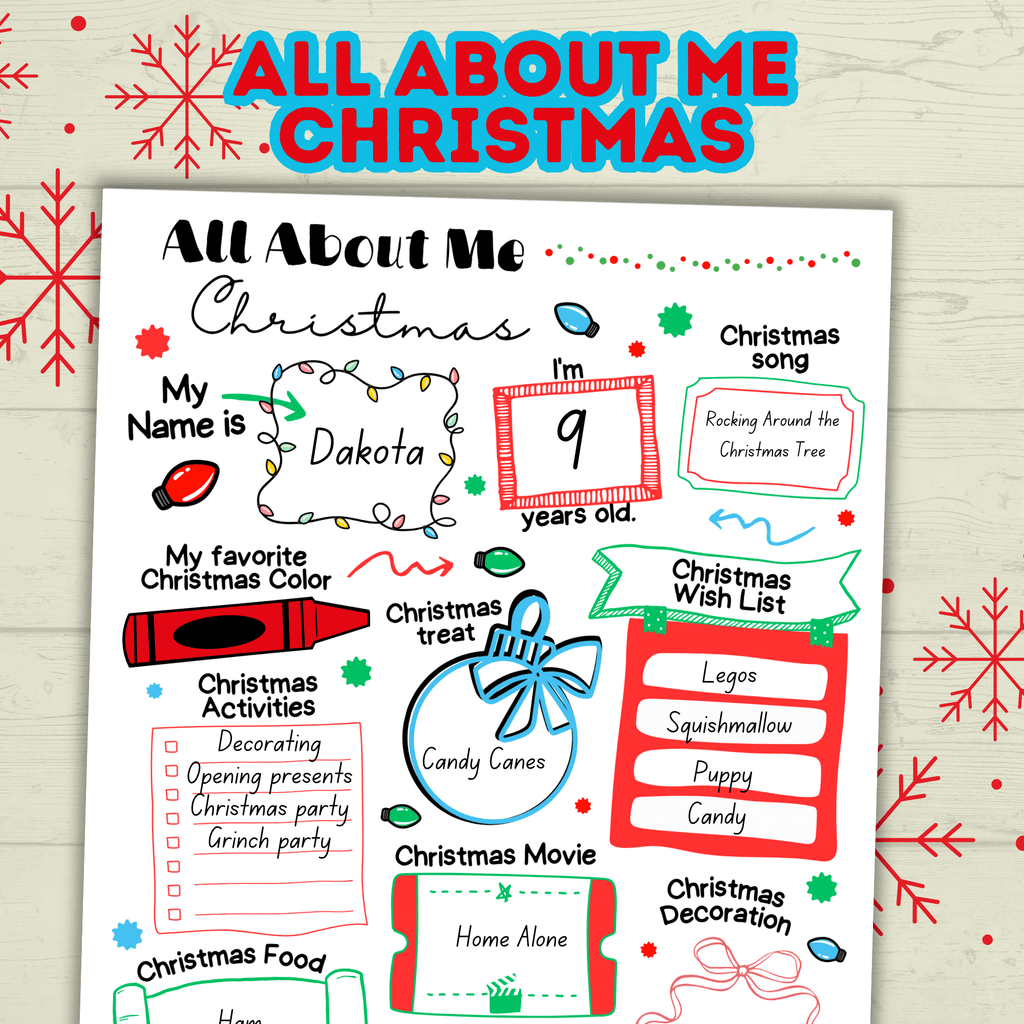 ALL ABOUT ME
CHRISTMAS
All About Me
Christmas
My
Name is
Dakota
I'm
9
years old.
Christmas
song
Rocking Around the
Christmas Tree
My favorite
Christmas Color
Christmas
treat
Candy Canes
Christmas
Wish List
Legos
Squishmallow
Puppy
Candy
Christmas
Activities
Decorating
Opening presents
Christmas party
Grinch party
Christmas Movie
Home Alone
Christmas
Decoration
Christmas Food
Ham